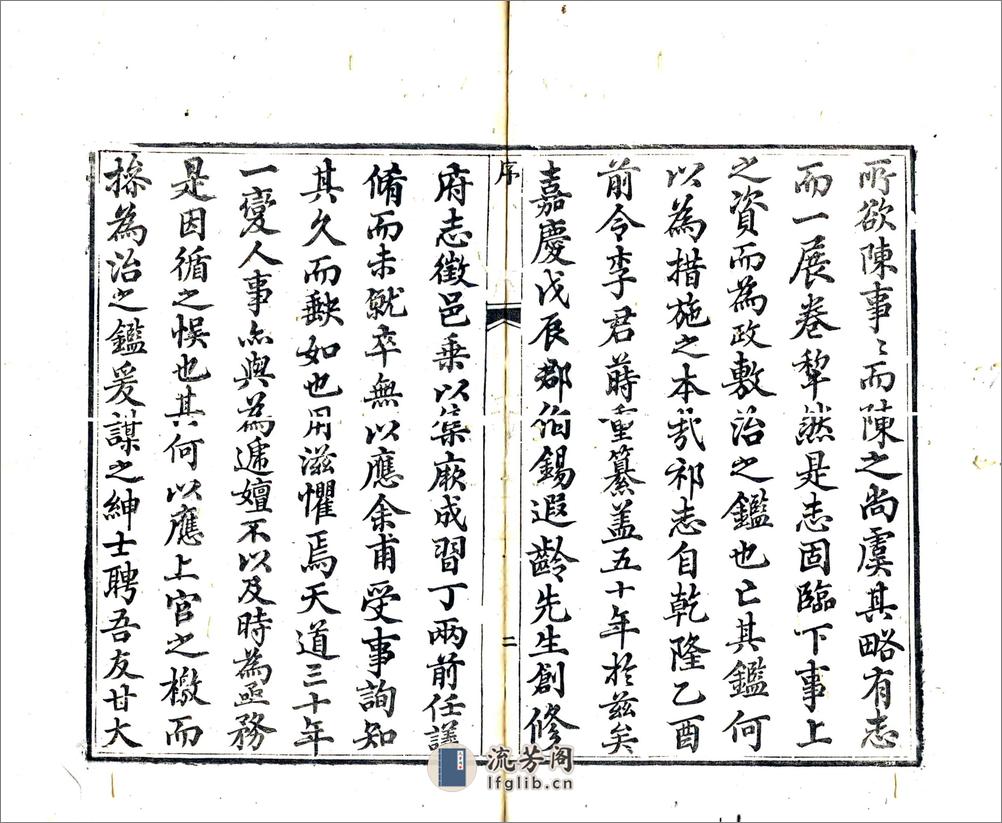 所欲陳事〻而陳之尚虞其略有志
而一展卷犂然是志固臨下事上
之資而為政敷治之鑑也亡其鑑何
以為措施之本哉祁志自乾隆乙酉
前令李君蒔重纂盖五十年於茲矣
嘉慶戊辰郡伯錫遐齡先生創修
序
二
府志徵邑乗以集厥成習丁兩前任議
脩而未就卒無以應余甫受事詢知
其久而缺如也用滋懼焉天道三十年
一變人事亦與為遞嬗不以及時為亟務
是因循之悞也其何以應上官之檄而
操為治之鑑爰謀之紳士聘吾友甘大
流芳阁
lfglib.cn